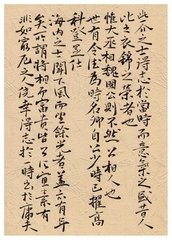 此一介之士得志於當時而意氣之盛昔人
比之衣錦之榮者也
惟大丞相魏國公則不然公相人也
世有令德為時名卿自公少時已擢高
科登顯仕
海内之士聞下風而望餘光者蓋亦有年
矣所謂將相而富貴皆公所宜素有
非如窮厄之人僥幸得志於一時出於庸夫